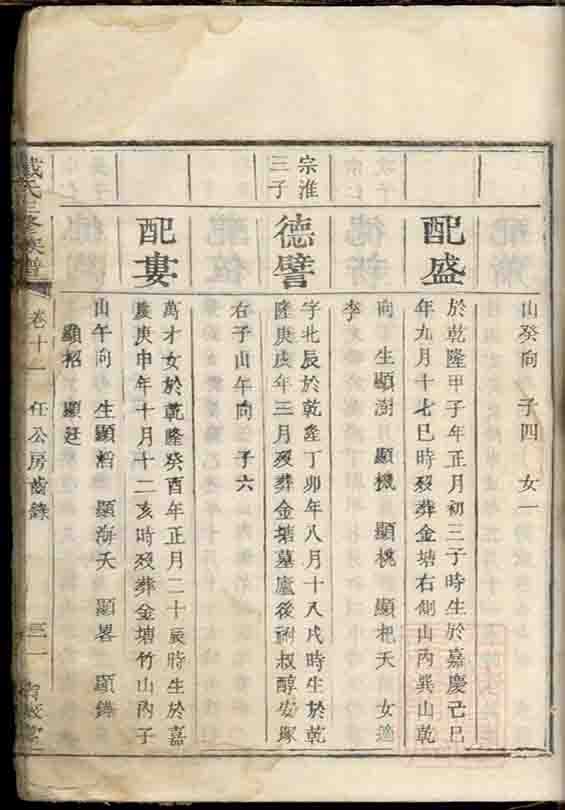 山癸向 子四 女一
配盛
於乾隆甲子年正月初三子時生於嘉慶己巳
年九月十七巳時歿葬金塘右側山內巽山乾
向 生顯澍 顯機 顯桃 顯杷夭 女適
李
宗淮
三子
德譬
字北辰於乾隆丁卯年八月十八戌時生於乾
隆庚戌年三月歿葬金塘墓廬後祔叔醇安塚
右子山午向 子六
配婁
萬才女於乾隆癸酉年正月二十辰時生於嘉
慶庚申年十月十二亥時歿葬金塘竹山內子
山午向 生顯 顯海夭 顯畧 顯
顯招 顯廷
戴氏三修族譜
卷十一
任公房齒錄
三一